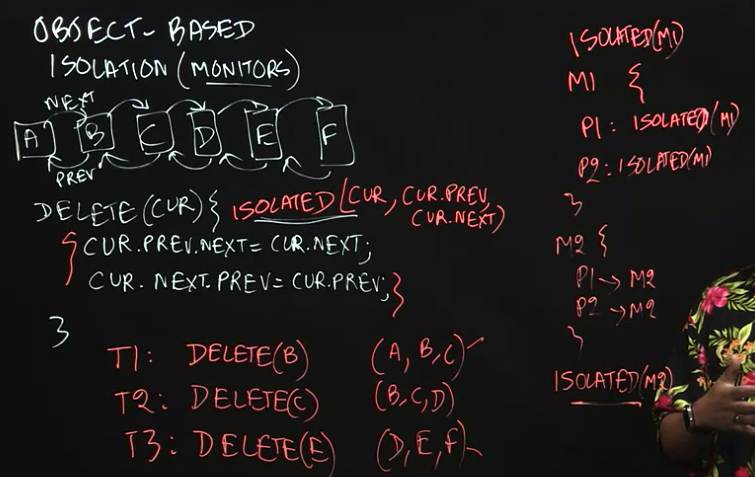 OBJECT-BASED
ISOLATION (MONITORS)
NEXT
A B C D E F
PREV
DELETE (CUR) { ISOLATED (CUR, CUR.PREV,
CUR.NEXT)
{ CUR.PREV.NEXT = CUR.NEXT;
CUR.NEXT.PREV = CUR.PREV; }
}
T1: DELETE(B) (A, B, C)
T2: DELETE(C) (B, C, D)
T3: DELETE(E) (D, E, F)
ISOLATED(M1)
M1 {
P1: ISOLATED(M1)
P2: ISOLATED(M1)
}
M2 {
P1 → M2
P2 → M2
}
ISOLATED(M2)